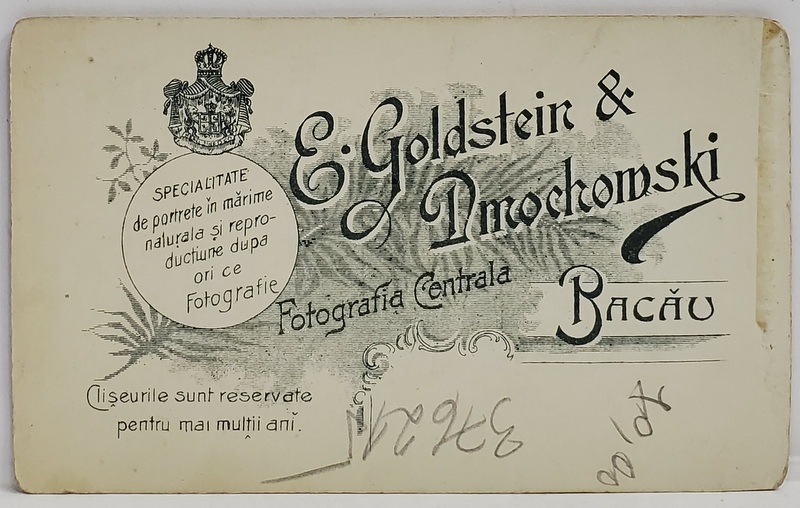 E. Goldstein &
Dmochowski
SPECIALITATE
de portrete în mărime
naturala și repro-
ductiune dupa
ori ce
Fotografie
Fotografia Centrala
BACĂU
Clișeurile sunt reservate
pentru mai mulții ani.
37621